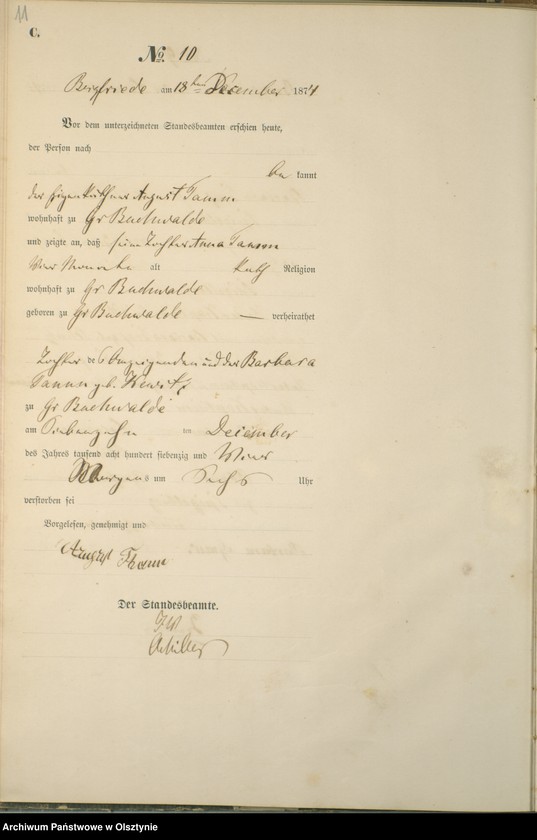 11
C.
№ 10
Bergfriede am 18ten December 1874
Vor dem unterzeichneten Standesbeamten erschien heute,
der Person nach
be kannt
der Eigenkäthner August Tamm
wohnhaft zu Gr Buchwalde
und zeigte an, daß seine Tochter Anna Tamm
Vier Monate alt kath Religion
wohnhaft zu Gr Buchwalde
geboren zu Gr Buchwalde — verheirathet
Tochter des Anzeigenden und der Barbara
Tamm geb.
zu Gr Buchwalde
am Siebenzehn ten December
des Jahres tausend acht hundert siebenzig und Vier
Morgens um Sechs Uhr
verstorben sei
Vorgelesen, genehmigt und
August
Der Standesbeamte.
Archiwum Państwowe w Olsztynie